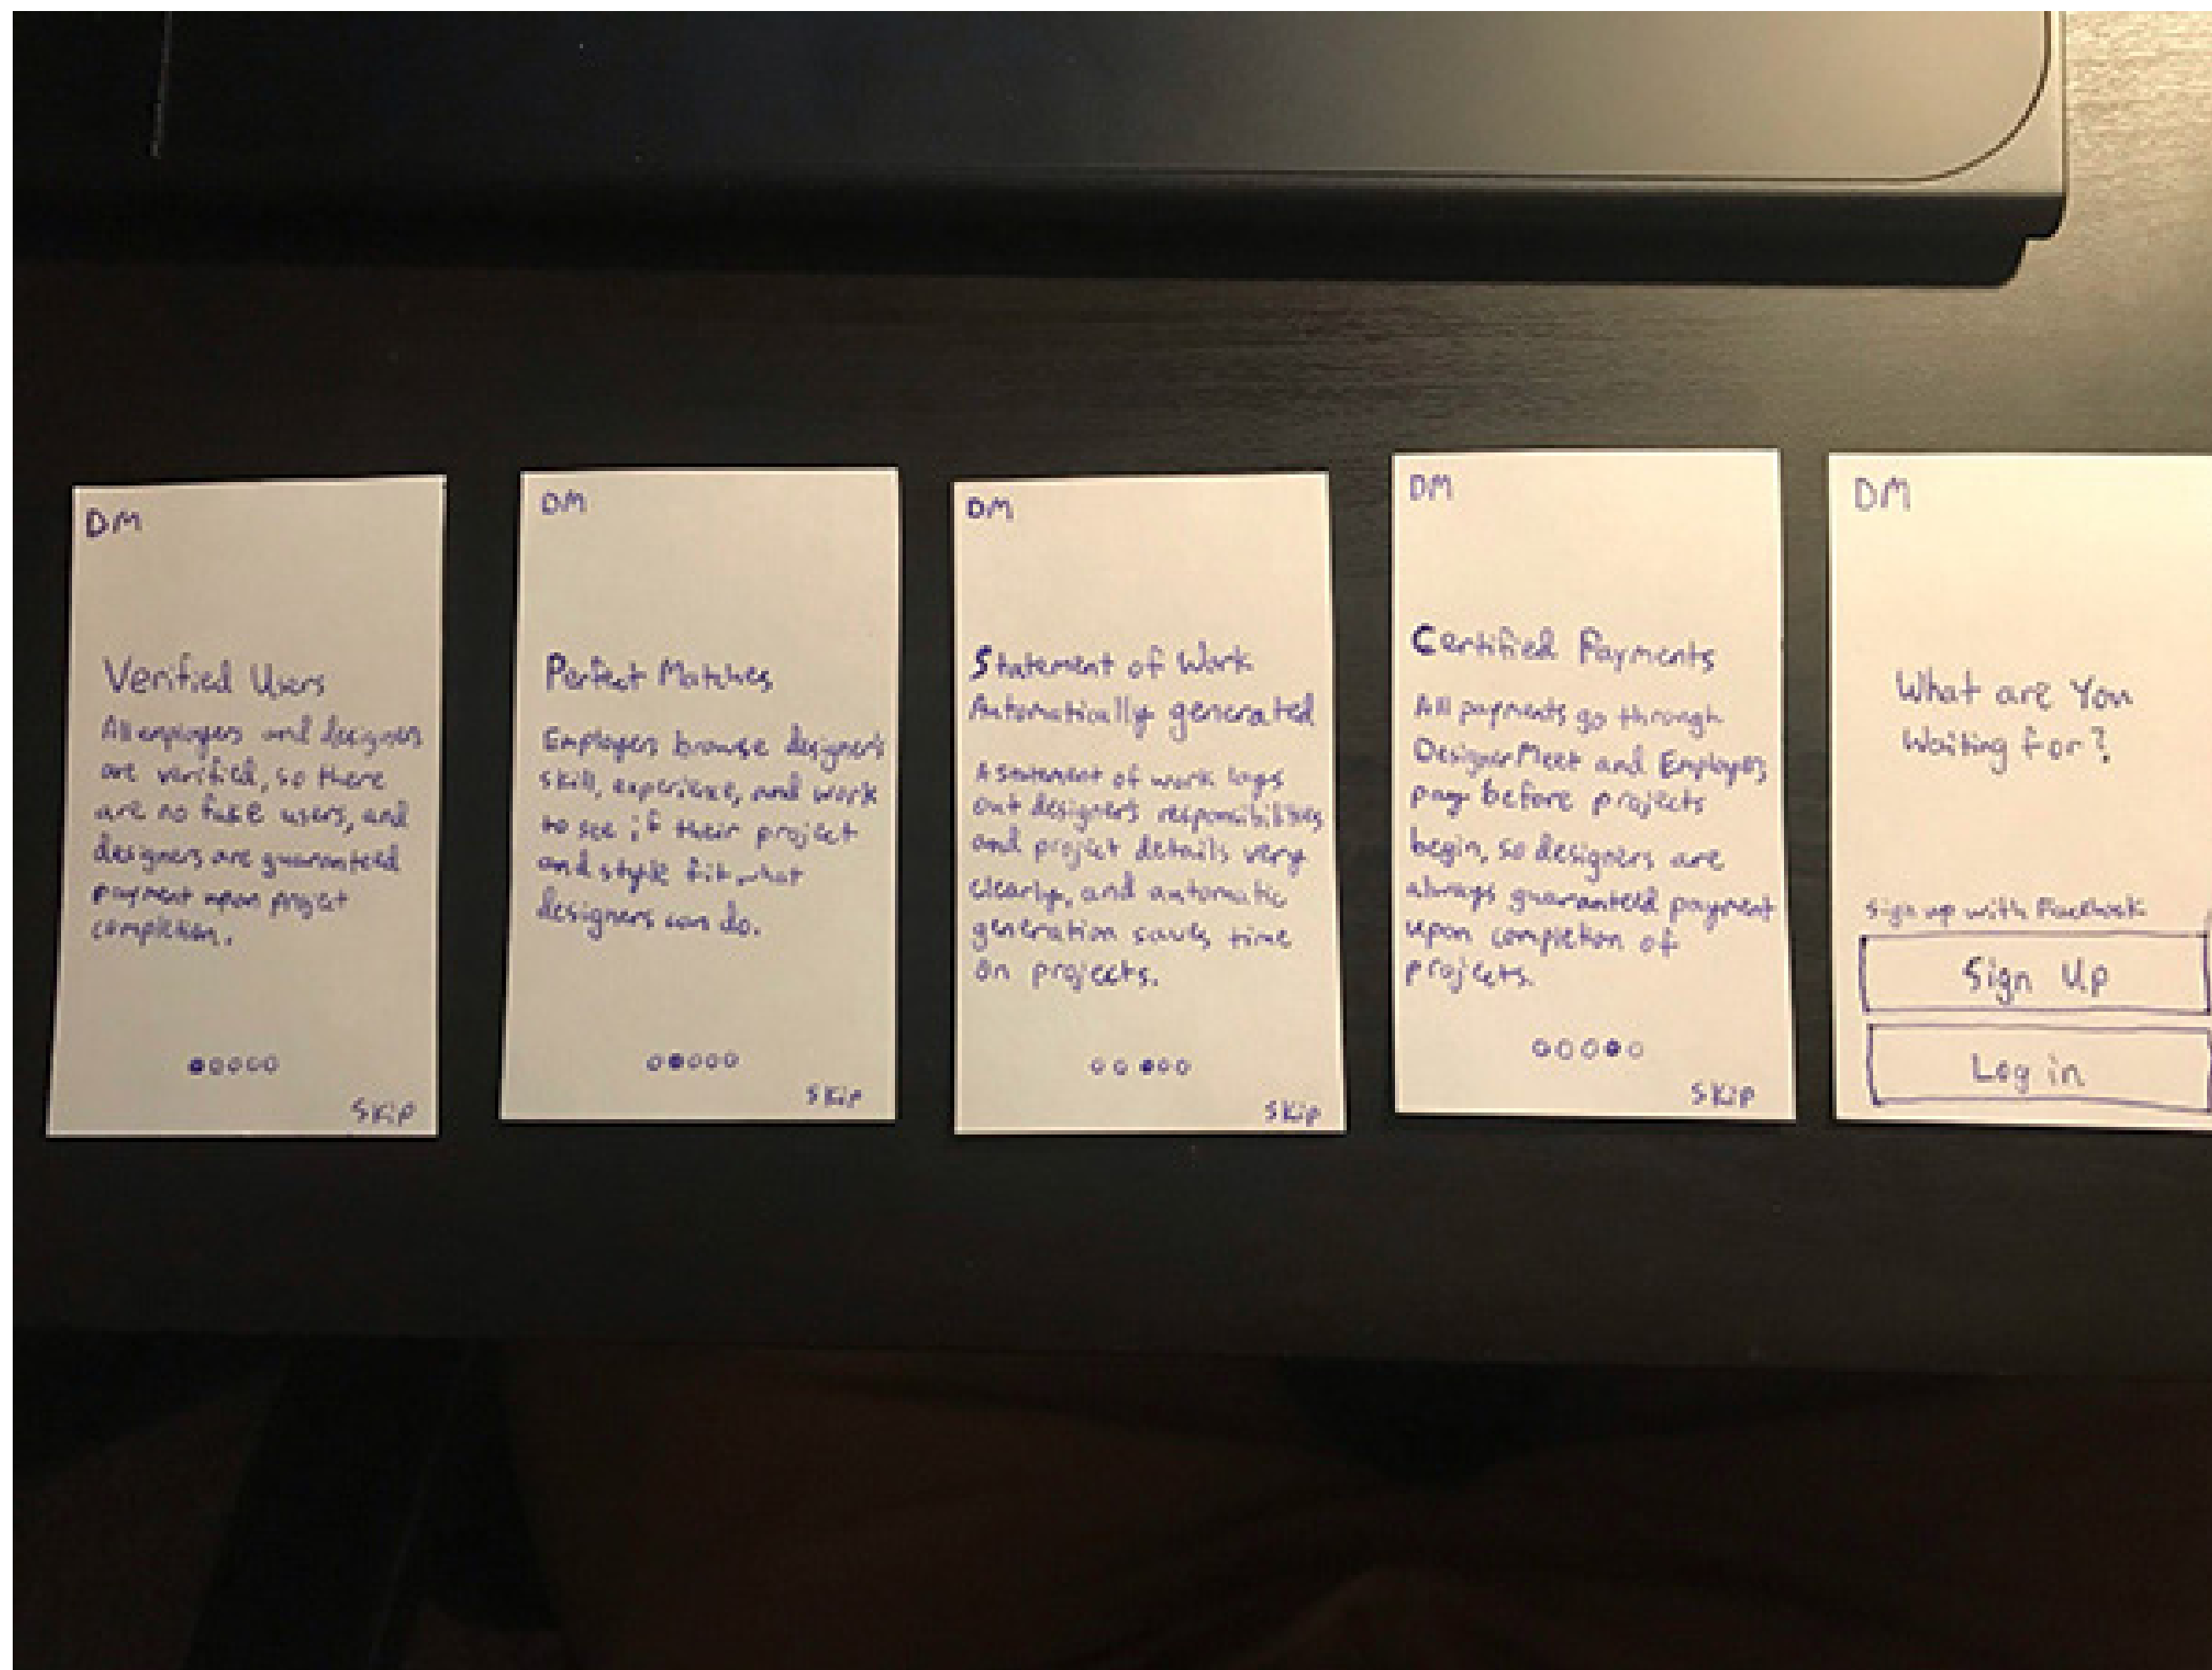 DM
Verified Users
All employers and designers
are verified, so there
are no fake users, and
designers are guaranteed
payment upon project
completion.
Skip
DM
Perfect Matches
Employers browse designers
skill, experience, and work
to see if their project
and style fit what
designers can do.
Skip
DM
Statement of Work
Automatically generated
A statement of work lays
out designers responsibilities
and project details very
clearly, and automatic
generation saves time
on projects.
Skip
DM
Certified Payments
All payments go through
DesignerMeet and Employers
pay before projects
begin, so designers are
always guaranteed payment
upon completion of
projects.
Skip
DM
What are You
Waiting for?
Sign up with Facebook
Sign Up
Log in